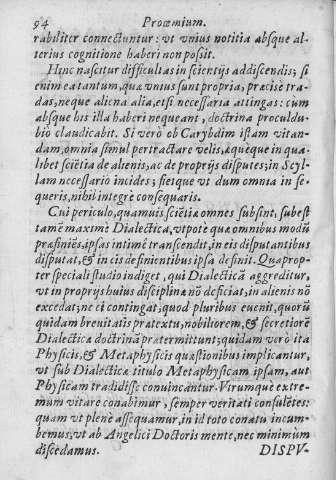 94 Proœmium.
rabiliter connectuntur: vt vnius notitia absque al-
terius cognitione haberi non possit.
Hinc nascitur difficultas in scientijs addiscendis; si
enim ea tantum, quæ vnius sunt propria, præcisè tra-
das, neque aliena alia, etsi necessaria attingas: cum
absque his illa haberi nequeant, doctrina proculdu-
biò claudicabit. Si verò ob Carybdim istam vitan-
dam, omnia simul pertractare velis, æquèque in qua-
libet sciẽtia de alienis, ac de proprijs disputes; in Scyl-
lam necessario incides; fietque vt dum omnia in se-
queris, nihil integrè consequaris.
Cui periculo, quamuis sciẽtiæ omnes subsint, subest
tamẽ maximè Dialectica, vtpotè quæ omnibus modũ
præfiniẽs, ipsas intimè transcendit, in eis disputantibus
disputat, & in cis definientibus ipsa definit. Quaprop-
ter speciali studio indiget, qui Dialecticã aggreditur,
vt in proprijs huius disciplinæ nõ deficiat, in alienis nõ
excedat; ne ei contingat; quod pluribus euenit, quorũ
quidam breuitatis prætextu, nobiliorem, & secretiorẽ
Dialecticæ doctrinã prætermittunt; quidam verò ita
Physicis, & Metaphysicis quæstionibus implicantur,
vt sub Dialecticæ titulo Metaphysicam ipsam, aut
Physicam tradidisse conuincantur. Vtrumque extre-
mum vitare conabimur, semper veritati consulẽtes:
quam vt plenè assequamur, in id toto conatu incum-
bemus, vt ab Angelici Doctoris mente, nec minimùm
discedamus. DISPV-